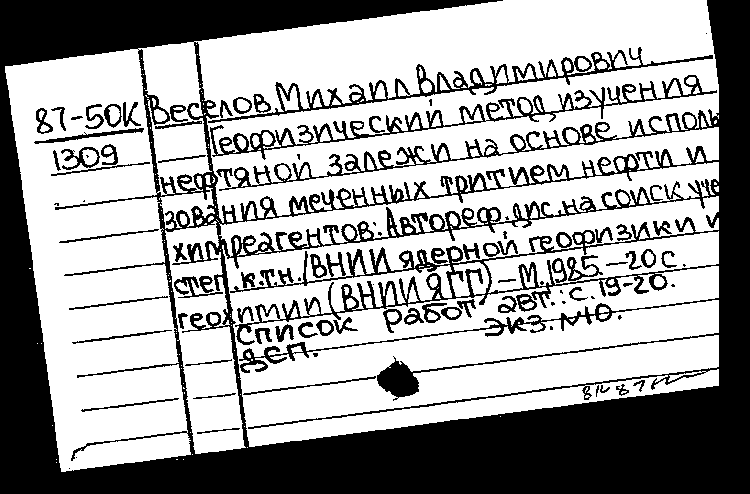 87-50К Веселов, Михаил Владимирович.
1309 Геофизический метод изучения
нефтяной залежи на основе исполь
зования меченных тритием нефти и
химреагентов: Автореф. дис. на соиск уче
степ. к.т.н. /ВНИИ ядерной геофизики и
геохимии (ВНИИЯГГ). – М. 1985. – 20 с.
Список работ авт.: с. 19-20.
ЭКЗ. №10.